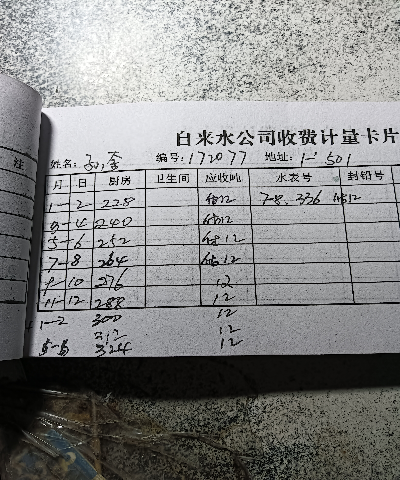 自来水公司收费计量卡片
姓名: 编号: 172077 地址: 1-1 501
注
月 日 厨房 卫生间 应收吨 水表号 封铅号
1-2 228 12 12
3-4 240 12
5-6 252 12
7-8 264 12
9-10 276 12
11-12 288 12
1-2 300 12
312 12
324 12